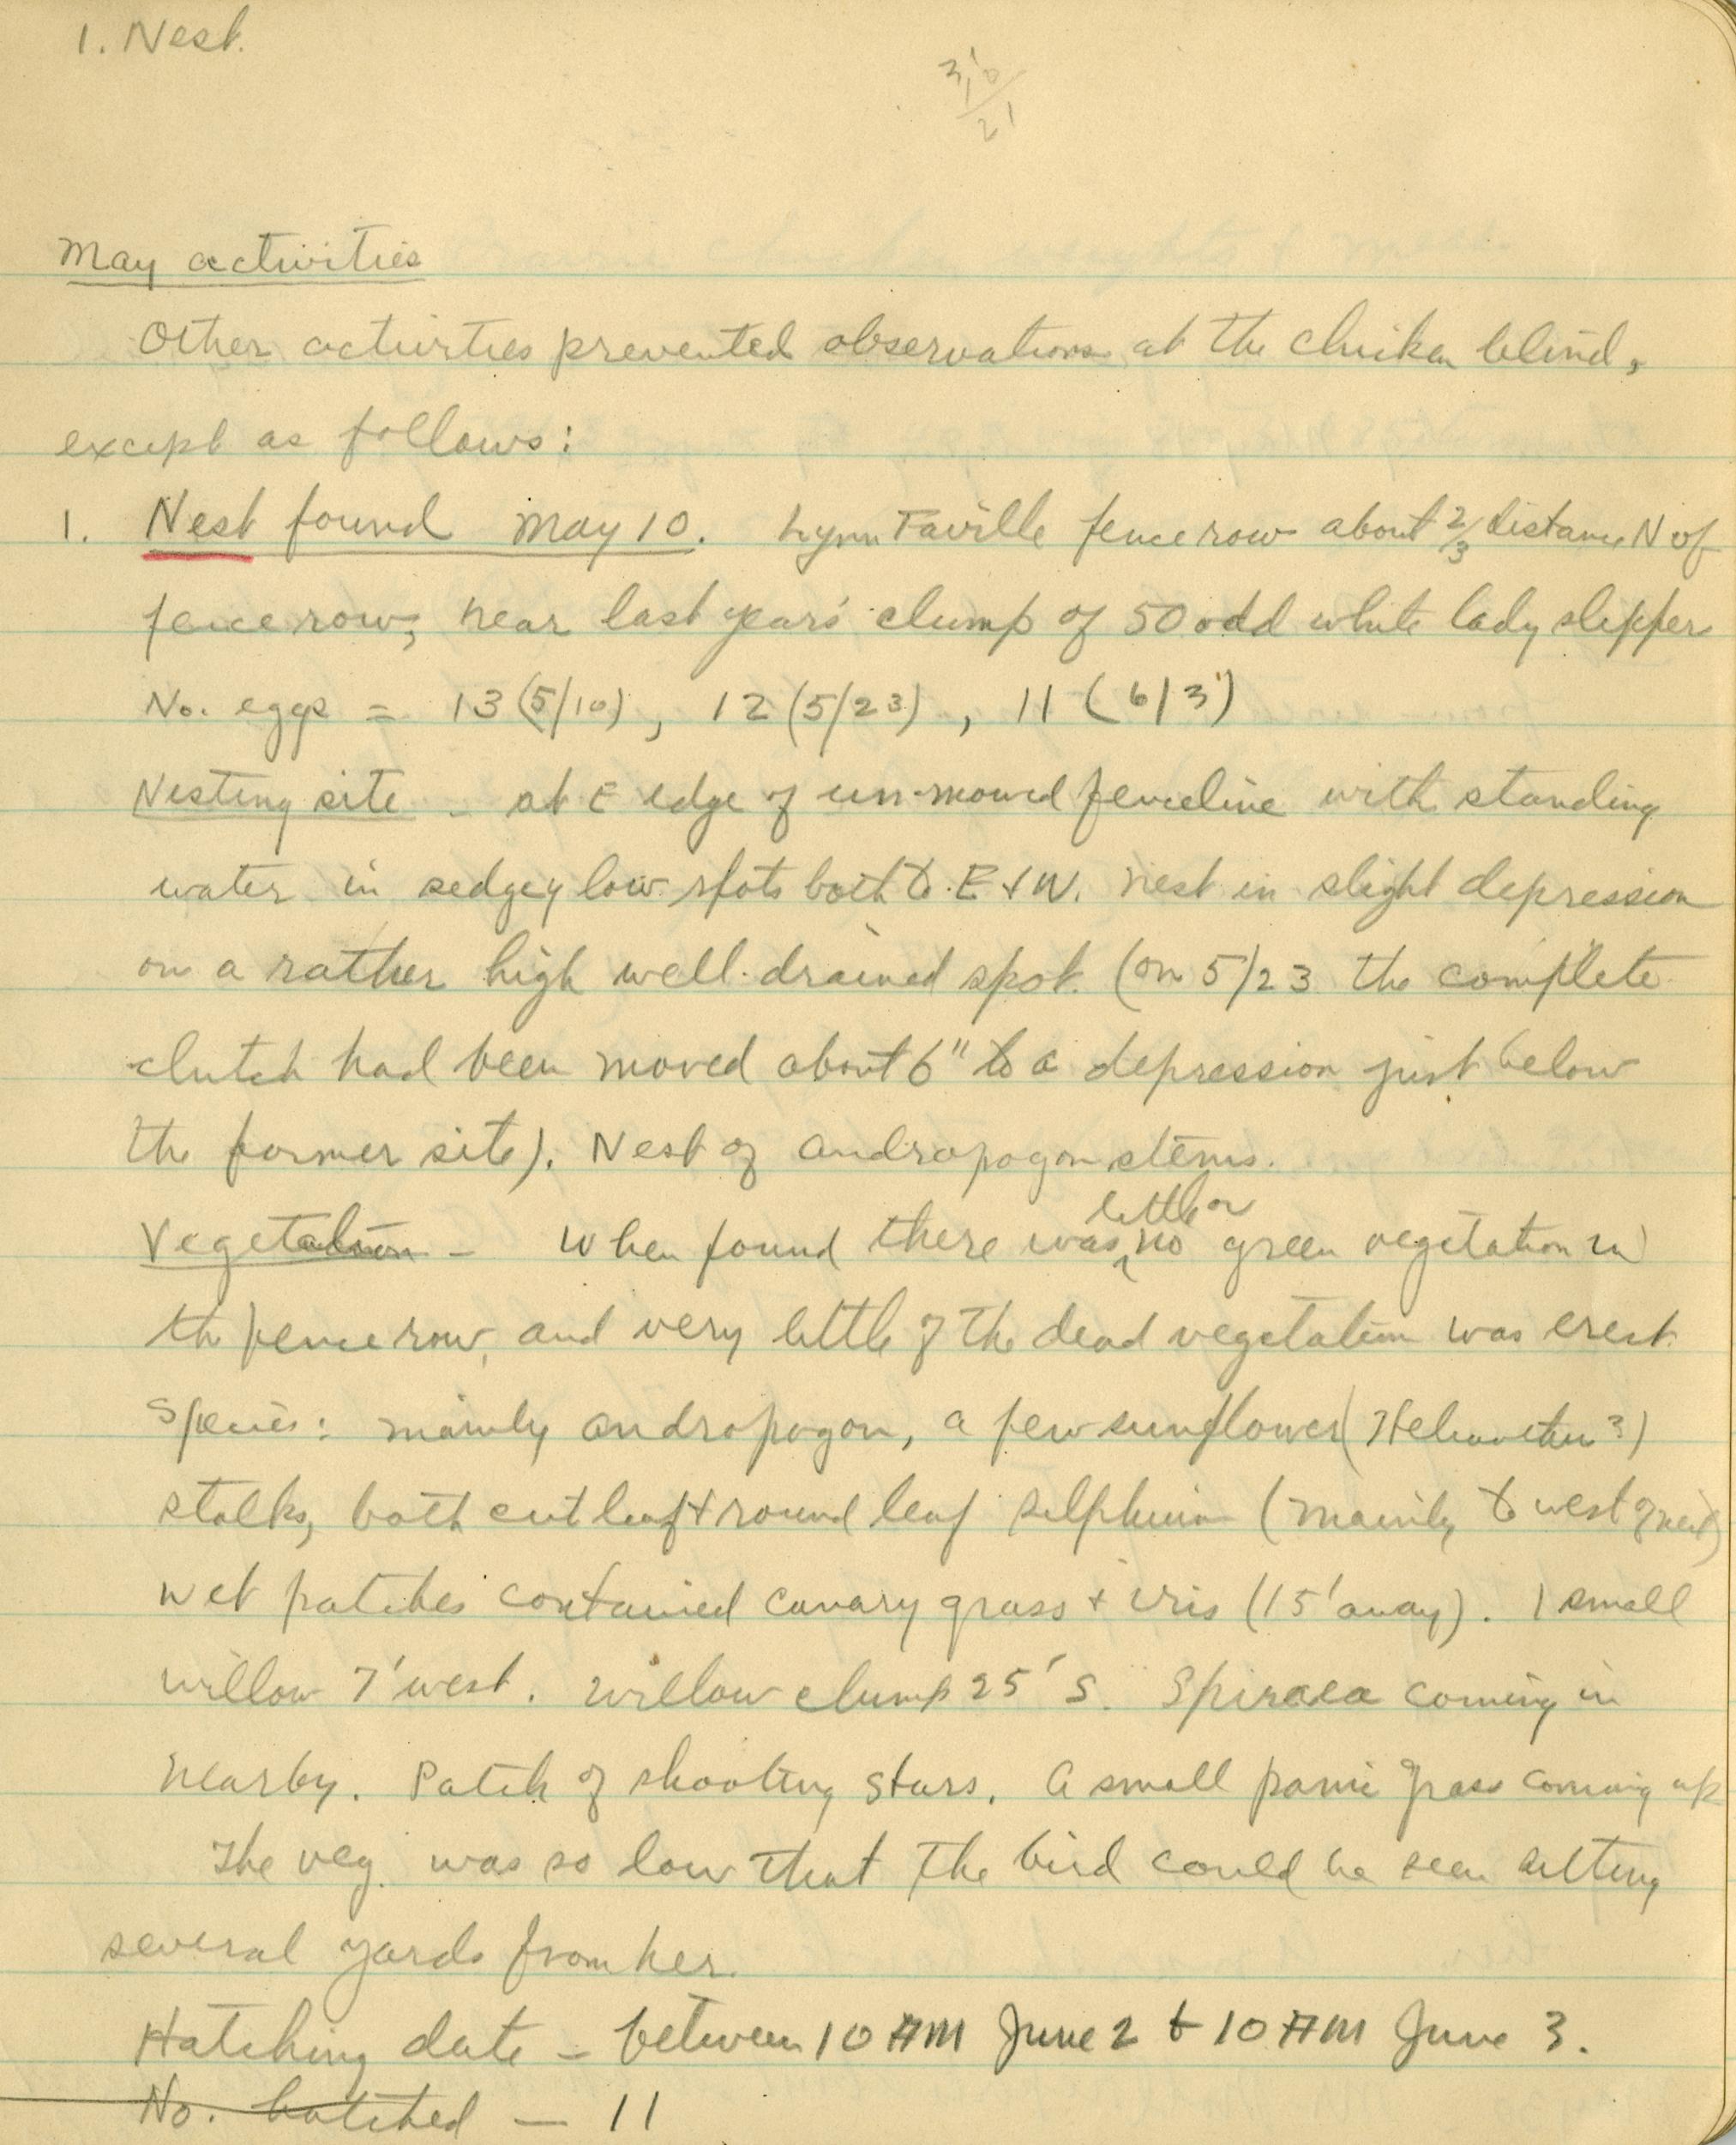 1. Nest.
May activities
Other activities prevented observations at the chicken blind,
except as follows:
1. Nest found May 10. Lynn Faville fence row about 2/3 distance N of
fence row, near last years' clump of 50 odd white lady slippers
No. eggs = 13 (5/10), 12 (5/23), 11 (6/3)
Nesting site - at E edge of un-mowed fenceline with standing
water in sedgey low spots both to E + W. Nest in slight depression
on a rather high well-drained spot. (on 5/23 the complete
clutch had been moved about 6" to a depression just below
the former site). Nest of andropogon stems.
Vegetation - When found there was little or no green vegetation in
the fence row, and very little of the dead vegetation was erect.
Species: mainly andropogon, a few sunflower (
stalks, both cut leaf + round leaf silphium (mainly to west of nest)
Wet patches contained canary grass + iris (15' away). 1 small
willow 7' west. Willow clump 25' S. Spiraea coming in
nearby. Patch of shooting stars. A small panic grass coming up
The veg. was so low that the bird could be seen sitting
several yards from her.
Hatching date - between 10 AM June 2 + 10 AM June 3.
No. hatched - 11